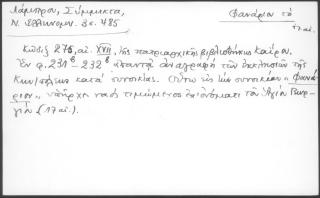 Λάμπρου, Σύμμικτα,
Ν. Ἑλληνομν. 3 σ. 485
Φανάριον τό
17 αι.
Κῶδιξ 276, αἰ. XVII, τῆς πατριαρχικῆς βιβλιοθήκης Καΐρου.
Ἐν φ. 231β - 232β ἀπαντᾷ ἀναγραφὴ τῶν ἐκκλησιῶν τῆς
Κων/πόλεως κατὰ συνοικίας. Οὕτω εἰς τὴν συνοικίαν "Φανά
ριον" ὑπῆρχε ναὸς τιμώμενος ἐπ' ὀνόματι τοῦ Ἁγίου Γεωρ
γίου (17 αἰ.).